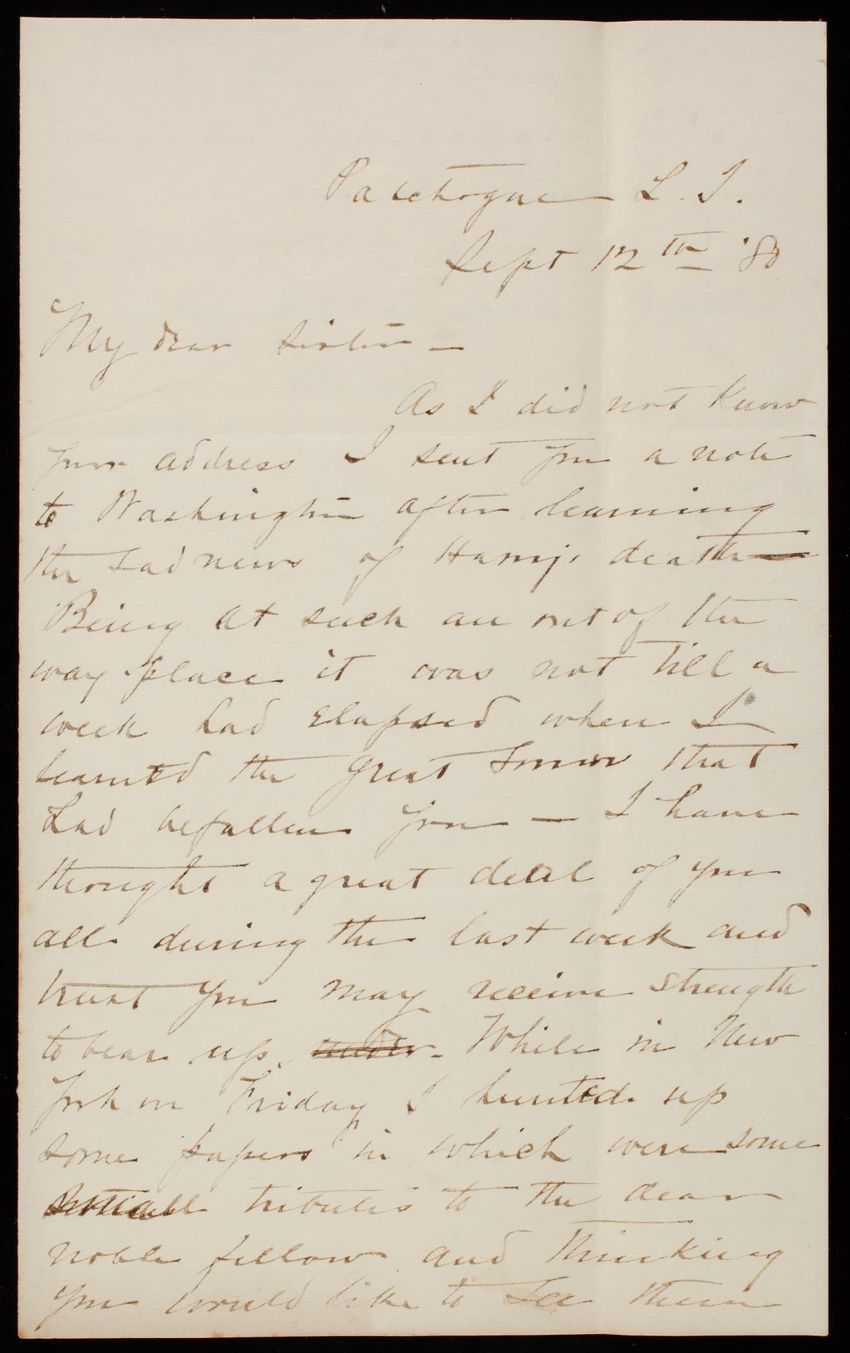 Patchogue L. I.
Sept 12th '80
My dear sister —
As I did not know
your address I sent you a note
to Washington after learning
the sad news of Harry's death —
Being at such an out of the
way place it was not till a
week had elapsed when I
learned the great sorrow that
had befallen you — I have
thought a great deal of you
all during the last week and
trust you may receive strength
to bear up. under. While in New
York on Friday I hunted up
some papers in which were some
small tributes to the dear
noble fellow and thinking
you would like to see them